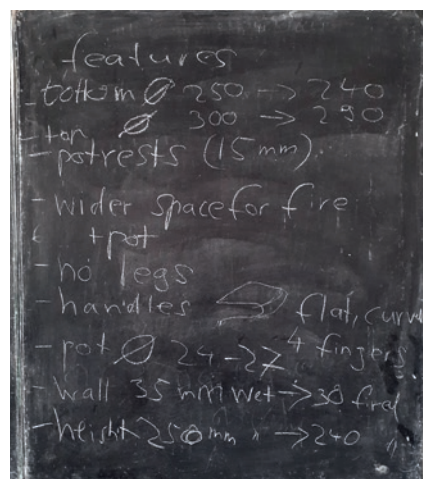 features
- bottom Ø 250 -> 240
- top Ø 300 -> 290
- potrests (15mm).
- wider space for fire
+pot
- no legs
- handles flat, curv
- pot Ø 24-27 4 fingers
- wall 35 mm wet -> 30 fired
- height 250mm " -> 240 "